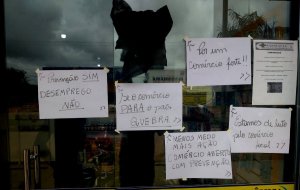 Prevenção SIM
DESEMPREGO
NÃO
Se o comércio
PARA o país
QUEBRA
>>
Por um
comércio forte!!
>>
MENOS MEDO
MAIS AÇÃO
COMÉRCIO ABERTO
COM PREVENÇÃO
>>
Estamos de luto
pelo comércio
local
>>